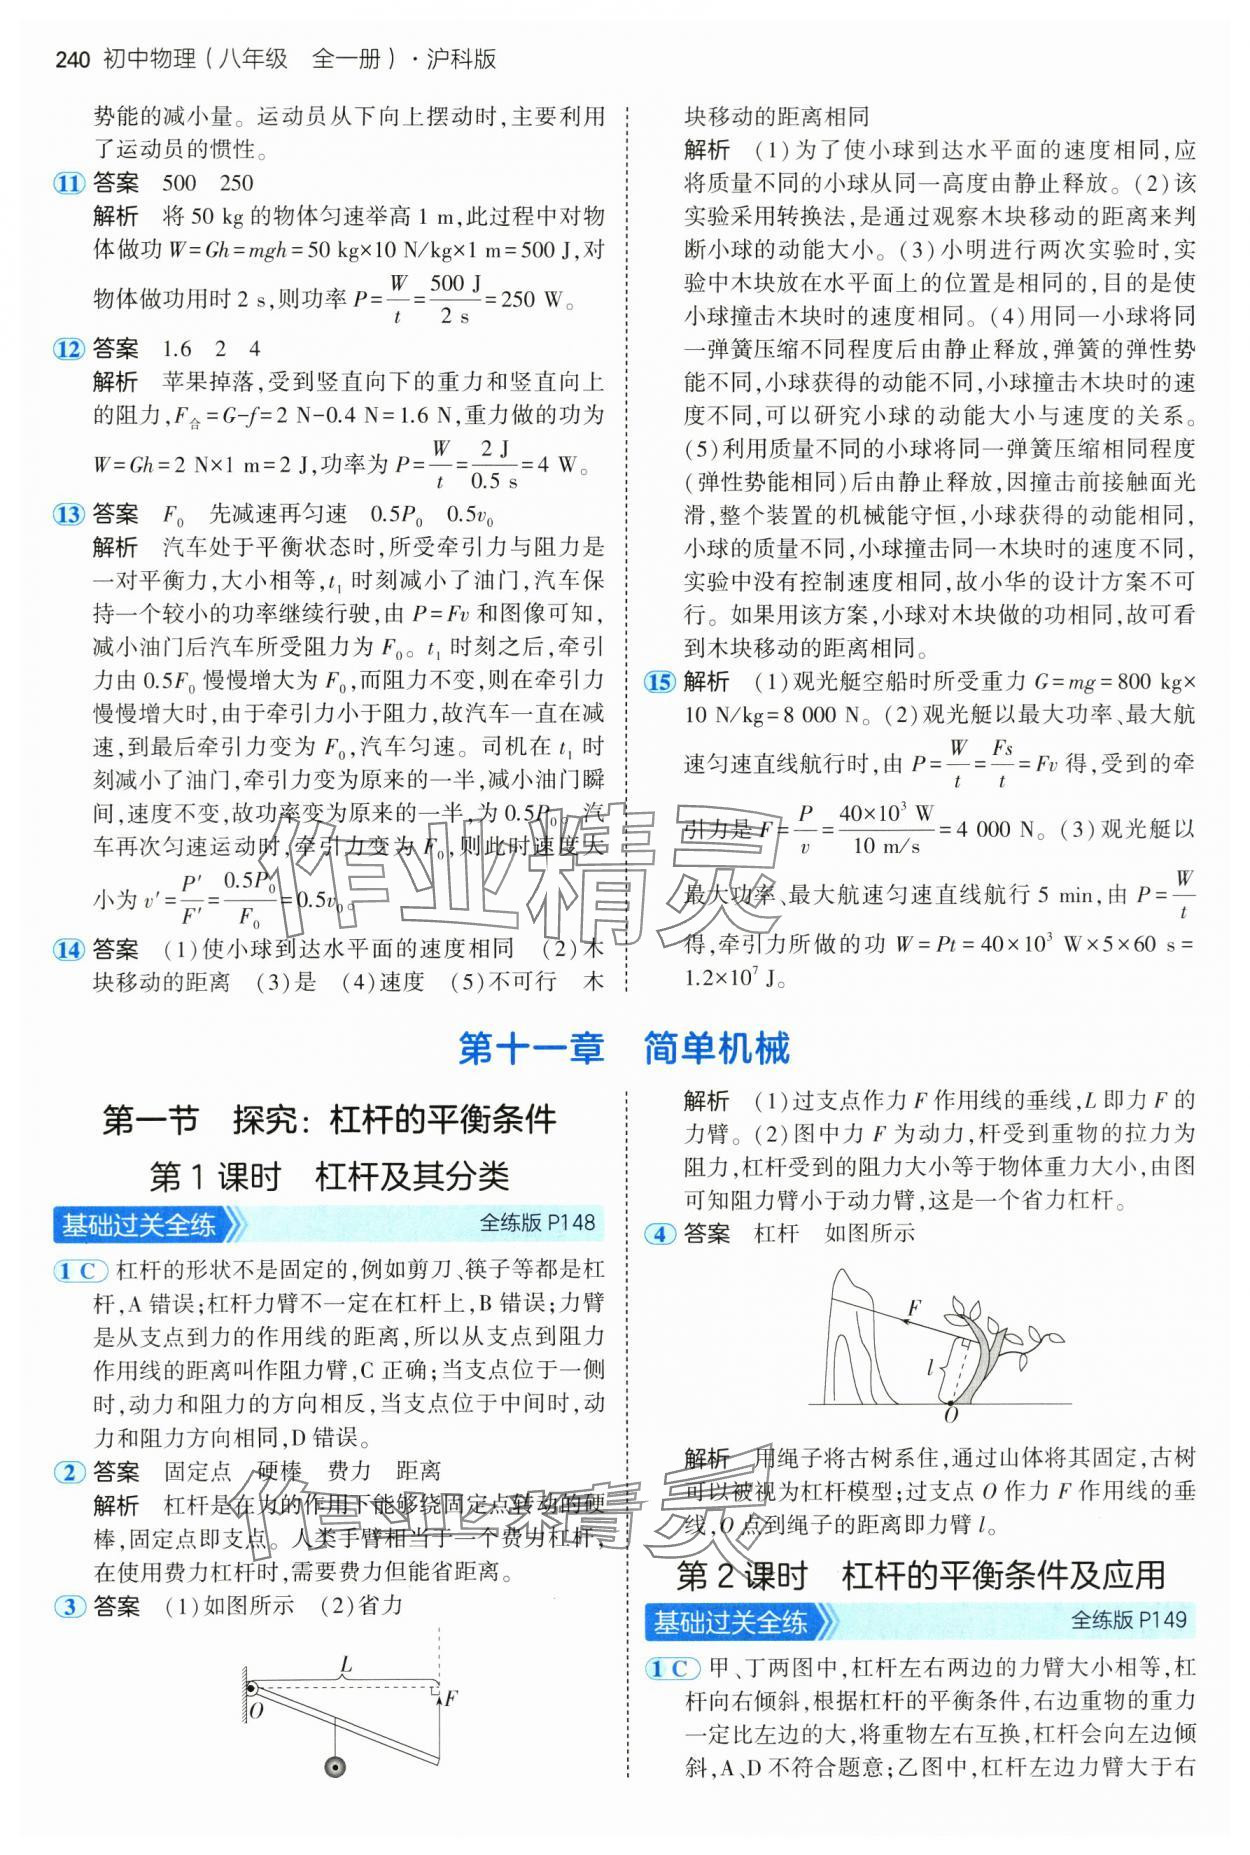 240 初中物理(八年级 全一册)·沪科版
势能的减小量。运动员从下向上摆动时,主要利用
了运动员的惯性。
11 答案 500 250
解析 将 50 kg 的物体匀速举高 1 m,此过程中对物
体做功 W=Gh=mgh=50 kg×10 N/kg×1 m=500 J,对
物体做功用时 2 s,则功率 P=W/t=500 J/2 s=250 W。
12 答案 1.6 2 4
解析 苹果掉落,受到竖直向下的重力和竖直向上
的阻力,F合=G-f=2 N-0.4 N=1.6 N,重力做的功为
W=Gh=2 N×1 m=2 J,功率为 P=W/t=2 J/0.5 s=4 W。
13 答案 F₀ 先减速再匀速 0.5P₀ 0.5v₀
解析 汽车处于平衡状态时,所受牵引力与阻力是
一对平衡力,大小相等,t₁ 时刻减小了油门,汽车保
持一个较小的功率继续行驶,由 P=Fv 和图像可知,
减小油门后汽车所受阻力为 F₀。t₁ 时刻之后,牵引
力由 0.5F₀ 慢慢增大为 F₀,而阻力不变,则在牵引力
慢慢增大时,由于牵引力小于阻力,故汽车一直在减
速,到最后牵引力变为 F₀,汽车匀速。司机在 t₁ 时
刻减小了油门,牵引力变为原来的一半,减小油门瞬
间,速度不变,故功率变为原来的一半,为 0.5P₀。汽
车再次匀速运动时,牵引力变为 F₀,则此时速度大
小为 v′=P′/F′=0.5P₀/F₀=0.5v₀。
14 答案 (1)使小球到达水平面的速度相同 (2)木
块移动的距离 (3)是 (4)速度 (5)不可行 木
块移动的距离相同
解析 (1)为了使小球到达水平面的速度相同,应
将质量不同的小球从同一高度由静止释放。(2)该
实验采用转换法,是通过观察木块移动的距离来判
断小球的动能大小。(3)小明进行两次实验时,实
验中木块放在水平面上的位置是相同的,目的是使
小球撞击木块时的速度相同。(4)用同一小球将同
一弹簧压缩不同程度后由静止释放,弹簧的弹性势
能不同,小球获得的动能不同,小球撞击木块时的速
度不同,可以研究小球的动能大小与速度的关系。
(5)利用质量不同的小球将同一弹簧压缩相同程度
(弹性势能相同)后由静止释放,因撞击前接触面光
滑,整个装置的机械能守恒,小球获得的动能相同,
小球的质量不同,小球撞击同一木块时的速度不同,
实验中没有控制速度相同,故小华的设计方案不可
行。如果用该方案,小球对木块做的功相同,故可看
到木块移动的距离相同。
15 解析 (1)观光艇空船时所受重力 G=mg=800 kg×
10 N/kg=8 000 N。(2)观光艇以最大功率、最大航
速匀速直线航行时,由 P=W/t=Fs/t=Fv 得,受到的牵
引力是 F=P/v=40×10³ W/10 m/s=4 000 N。(3)观光艇以
最大功率、最大航速匀速直线航行 5 min,由 P=W/t
得,牵引力所做的功 W=Pt=40×10³ W×5×60 s=
1.2×10⁷ J。
第十一章 简单机械
第一节 探究:杠杆的平衡条件
第 1 课时 杠杆及其分类
基础过关全练 全练版 P148
1 C 杠杆的形状不是固定的,例如剪刀、筷子等都是杠
杆,A 错误;杠杆力臂不一定在杠杆上,B 错误;力臂
是从支点到力的作用线的距离,所以从支点到阻力
作用线的距离叫作阻力臂,C 正确;当支点位于一侧
时,动力和阻力的方向相反,当支点位于中间时,动
力和阻力方向相同,D 错误。
2 答案 固定点 硬棒 费力 距离
解析 杠杆是在力的作用下能够绕固定点转动的硬
棒,固定点即支点。人类手臂相当于一个费力杠杆,
在使用费力杠杆时,需要费力但能省距离。
3 答案 (1)如图所示 (2)省力
L
O
F
解析 (1)过支点作力 F 作用线的垂线,L 即力 F 的
力臂。(2)图中力 F 为动力,杆受到重物的拉力为
阻力,杠杆受到的阻力大小等于物体重力大小,由图
可知阻力臂小于动力臂,这是一个省力杠杆。
4 答案 杠杆 如图所示
F
l
O
解析 用绳子将古树系住,通过山体将其固定,古树
可以被视为杠杆模型;过支点 O 作力 F 作用线的垂
线,O 点到绳子的距离即力臂 l。
第 2 课时 杠杆的平衡条件及应用
基础过关全练 全练版 P149
1 C 甲、丁两图中,杠杆左右两边的力臂大小相等,杠
杆向右倾斜,根据杠杆的平衡条件,右边重物的重力
一定比左边的大,将重物左右互换,杠杆会向左边倾
斜,A、D 不符合题意;乙图中,杠杆左边力臂大于右
作业精灵
作业精灵